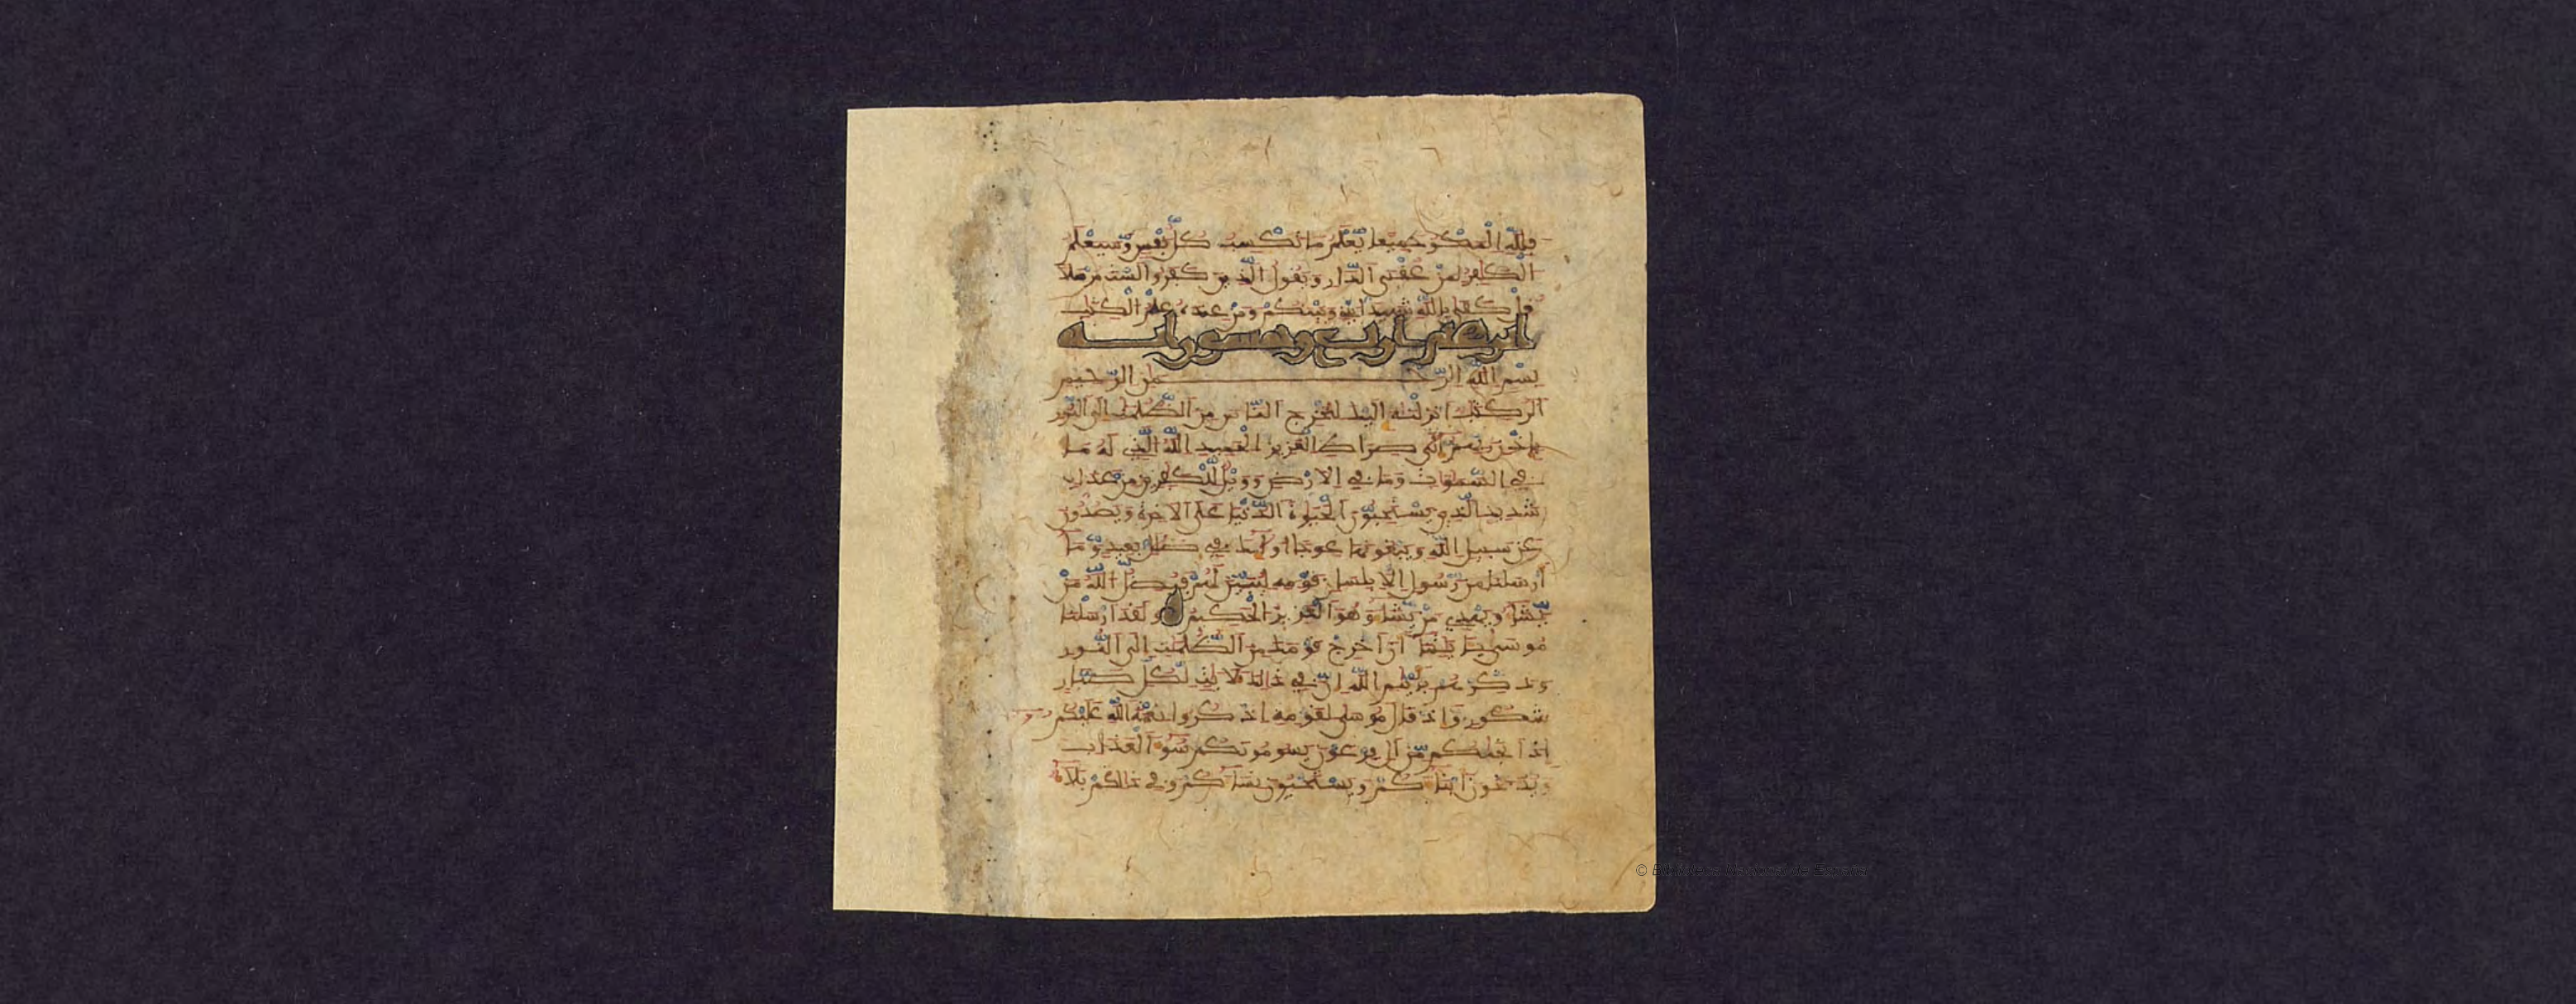 فلله المكر جميعا يعلم ما تكسب كل نفس وسيعلم
الكفر لمن عقبى الدار ويقول الذين كفروا لست مرسلا
قل كفى بالله شهيدا بيني وبينكم ومن عنده علم الكتب
ابرهيم اربع وخمسون ايه
بسم الله الرحمن الرحيم
الر كتب انزلنه اليك لتخرج الناس من الظلمت الى النور
باذن ربهم الى صراط العزيز الحميد الله الذي له ما
في السموات وما في الارض وويل للكفرين من عذاب
شديد الذين يستحبون الحيوة الدنيا على الاخرة ويصدون
عن سبيل الله ويبغونها عوجا اولئك في ضلل بعيد وما
ارسلنا من رسول الا بلسان قومه ليبين لهم فيضل الله من
يشا ويهدي من يشا وهو العزيز الحكيم ولقد ارسلنا
موسى بايتنا ان اخرج قومك من الظلمت الى النور
وذكرهم بايم الله ان في ذلك لايت لكل صبار
شكور واذ قال موسى لقومه اذكروا نعمة الله عليكم
اذ انجيكم من ال فرعون يسومونكم سو العذاب
ويذبحون ابناكم ويستحيون نساكم وفي ذالكم بلا